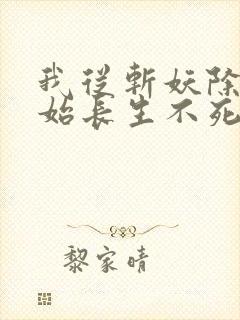 我從斬妖除
始長生不死
黎家晴